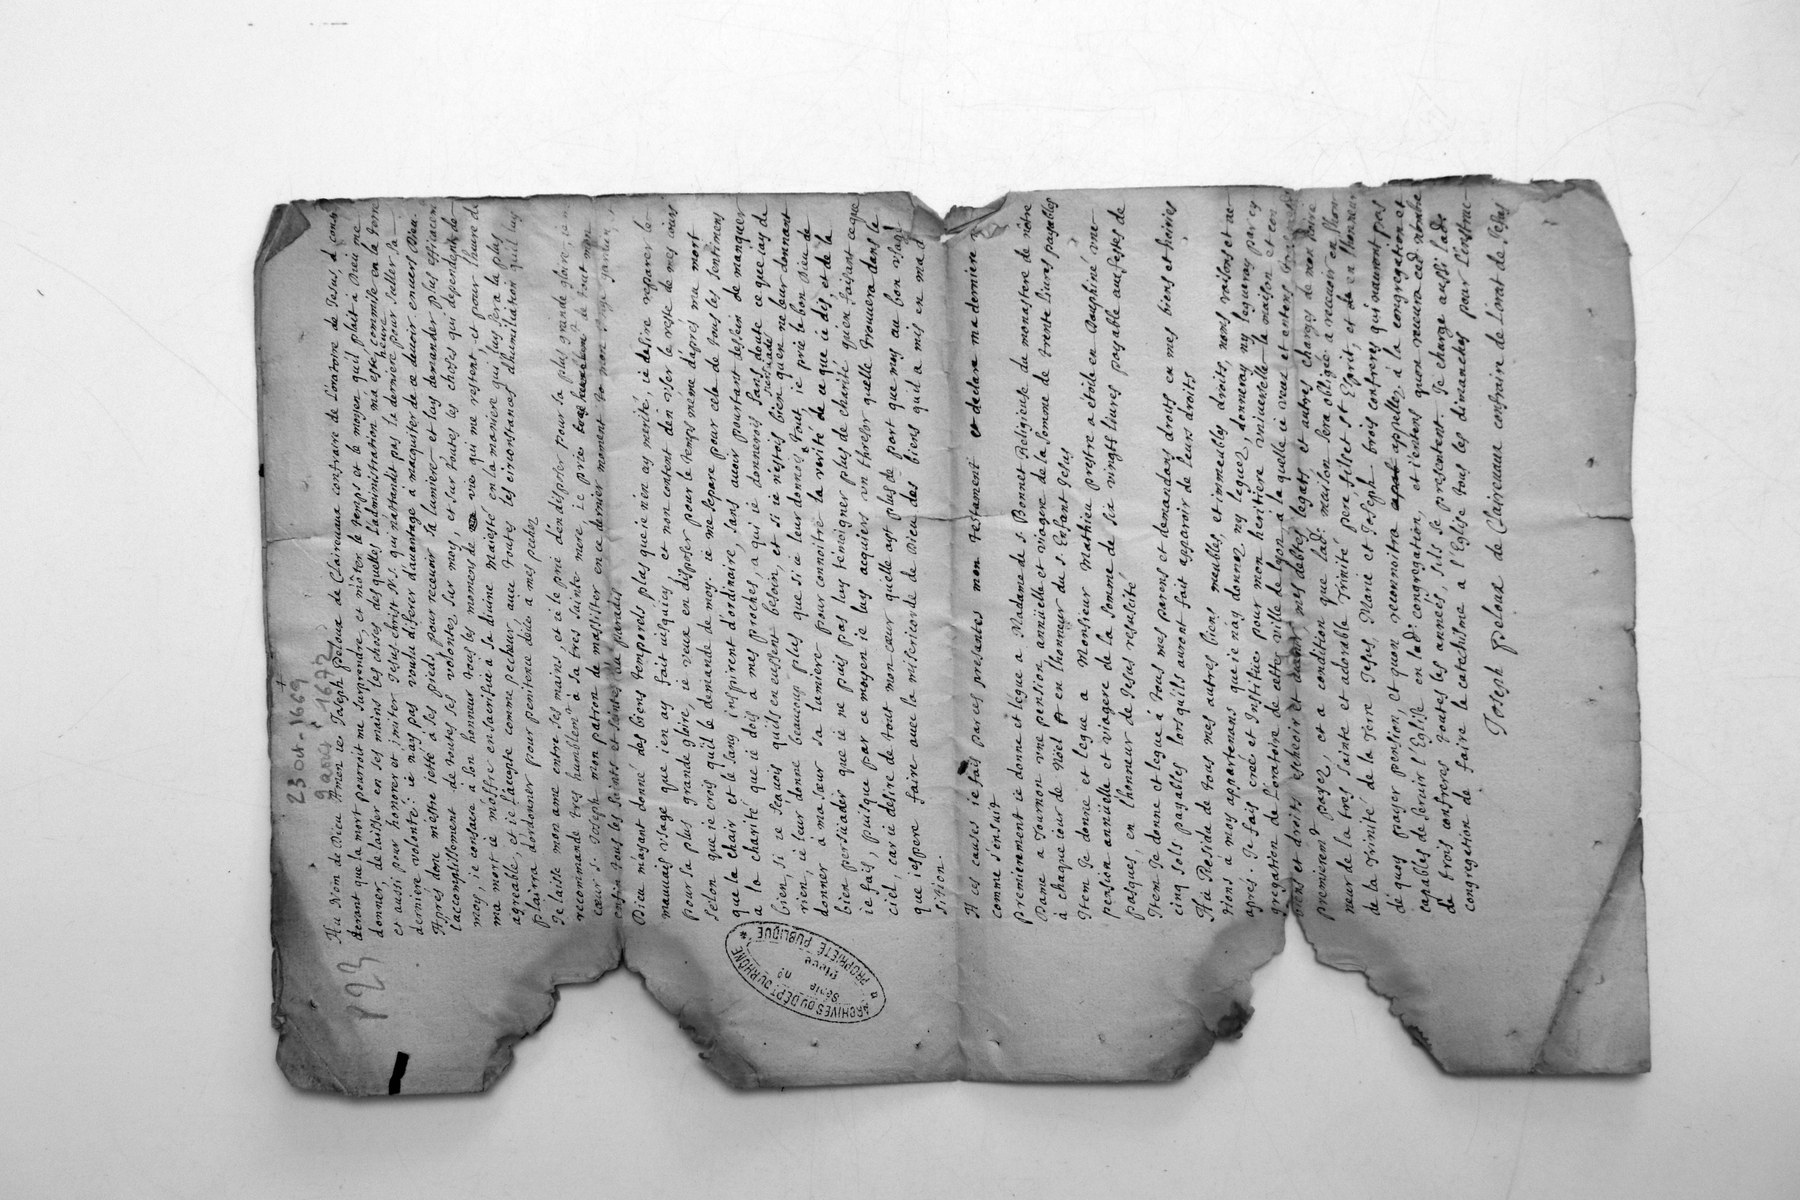 23 oct - 1669
9 aout 1677
P 23
Au Nom de Dieu Amen ie Joseph Peloux de Claireuaux confraire de L'oratoire de Jesus, d
deuant que la mort pourroit me surprendre, et m'oter le temps et le moyen qu'il plait a Dieu me
donner, de laisser en ses mains les choses desquelles l'administration ma esté commise en la terre
et aussi pour honorer et imiter Jesus christ N.S. qui n'attandit pas la derniere heure pour seller sa
derniere volanté: ie n'ay pas voulu diferer d'auantage a m'acquiter de ce deuoir enuers Dieu.
Aprés donc m'estre jetté a ses pieds pour receuoir sa lumiere et luy demander plus efficacem
l'accomplissement de toutes ses volontez sur moy, et sur toutes les choses qui dependent de
moy, ie consacre à son honneur tous les momens de vie qui me restent et pour l'heure de
ma mort ie m'offre en sacrifice a sa diuine Maiesté en la maniere qui luy sera la plus
agreable, et ie l'acepte comme pecheur, auec toutes les circonstances d'humiliation qu'il luy
plairra d'ordonner pour penitence deüe a mes pechez
Je laisse mon ame entre ses mains, et ie le prie d'en disposer pour sa plus grande gloire, ie
recommande tres humblemt à sa tres sainte mere, ie prie de tout mon
cœur s. Joseph mon patron de m'assister en ce dernier moment mon ange gardien,
enfin tous les saints et saintes du paradis
Dieu m'ayant donné des biens temporels plus que ie n'en ay merité, ie desire reparer le
mauuais vsage que i'en ay fait iusqu'icy et non content d'en vser le reste de mes iours
pour sa plus grande gloire, ie veux en disposer pour le temps méme d'aprés ma mort
selon que ie crois qu'il le demande de moy: ie me separe pour cela de tous les sentimens
que la chair et le sang inspirent d'ordinaire, sans auoir pourtant dessein de manquer
a la charité que ie dois a mes proches, a qui ie donnerois sans doute ce que i'ay de
bien, si ie sçauois qu'ils en eussent besoin, et si ie n'estois bien qu'en ne leur donnant
rien, ie leur donne beaucoup plus que si ie leur donnois tout, ie prie le bon Dieu de
donner a ma sœur sa lumiere pour connoitre la verité de ce que ie dis et de la
bien persüader que ie ne puis pas luy témoigner plus de charité qu'en faisant ce que
ie fais, puisque par ce moyen ie luy acquiers vn thresor quelle trouuera dans le
ciel car ie desire de tout mon cœur qu'elle ayt plus de part que moy au bon vsage
que i'espere faire auec la misericorde de Dieu des biens qu'il a mis en ma d
sition.
A ces causes ie fais par ces presantes mon Testament et declare ma derniere
comme s'ensuit
Premierement ie donne et legue a Madame de s. Bonnet Religieuse du monastere de nôtre
Dame a Tournon vne pension annüelle et viagere de la somme de trente liures payables
à chaque iour de Nöel en l'honneur du s. Enfant Jesus
Item Je donne et legue a Monsieur Mathieu prestre a étoile en Dauphiné vne
pension annüelle et viagere de la somme de six vingts liures payable aux festes de
pasques, en l'honneur de Jesus resuscité
Item Je donne et legue a tous mes parens et demandans droits en mes biens et hoiries
cinq sols payables lorsqu'ils auront fait apparoir de leurs droits
Au Residu de tous mes autres biens meubles, et immeubles, droits, noms raisons et ac
tions a moy appartenans que ie n'ay donnez ny leguez, donneray ny legueray par cy
aprés. Je fais creé et Institüe pour mon heritiere vniuerselle la maison et con
gregation de l'oratoire de cette ville de Lyon a laquelle ie veux et entens que
biens et droits eschoir et aduenir mes debtes legats, et autres charges de mon hoirie
premieremt payez, et a condition que lade maison sera obligée a receuoir en l'hon
neur de la tres sainte et adorable Trinité pere, fils et st Esprit, et en l'honneur
de la Trinité de la Terre Jesus, Marie et Joseph trois confreres qui n'auront pas
dequoy payer pension, et qu'on reconnoitra appellez à la congregation et
capables de seruir l'Eglise en lade congregation, et i'entens quon receura ced nombre
de trois confreres toutes les années, s'ils se presentent. Je charge aussi lade
congregation de faire le catechisme a l'Eglise tous les dimanches pour l'instruc
Joseph peloux de Claireuaux confraire de L'orat de Jesus
ARCHIVES DU DÉPT DU RHÔNE
Série
Pièce no
PROPRIÉTÉ PUBLIQUE